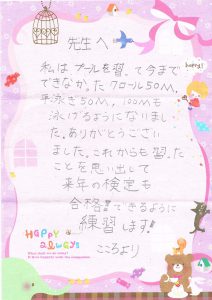 先生へ
私はプールを習って今まで
できなかったクロール50M、
平泳ぎ50M、100Mも
泳げるようになりまし
た。ありがとうござい
ました。これからも習った
ことを思い出して
来年の検定も
合格!!できるように
練習します!!
こころより
happy!
HAPPY
always